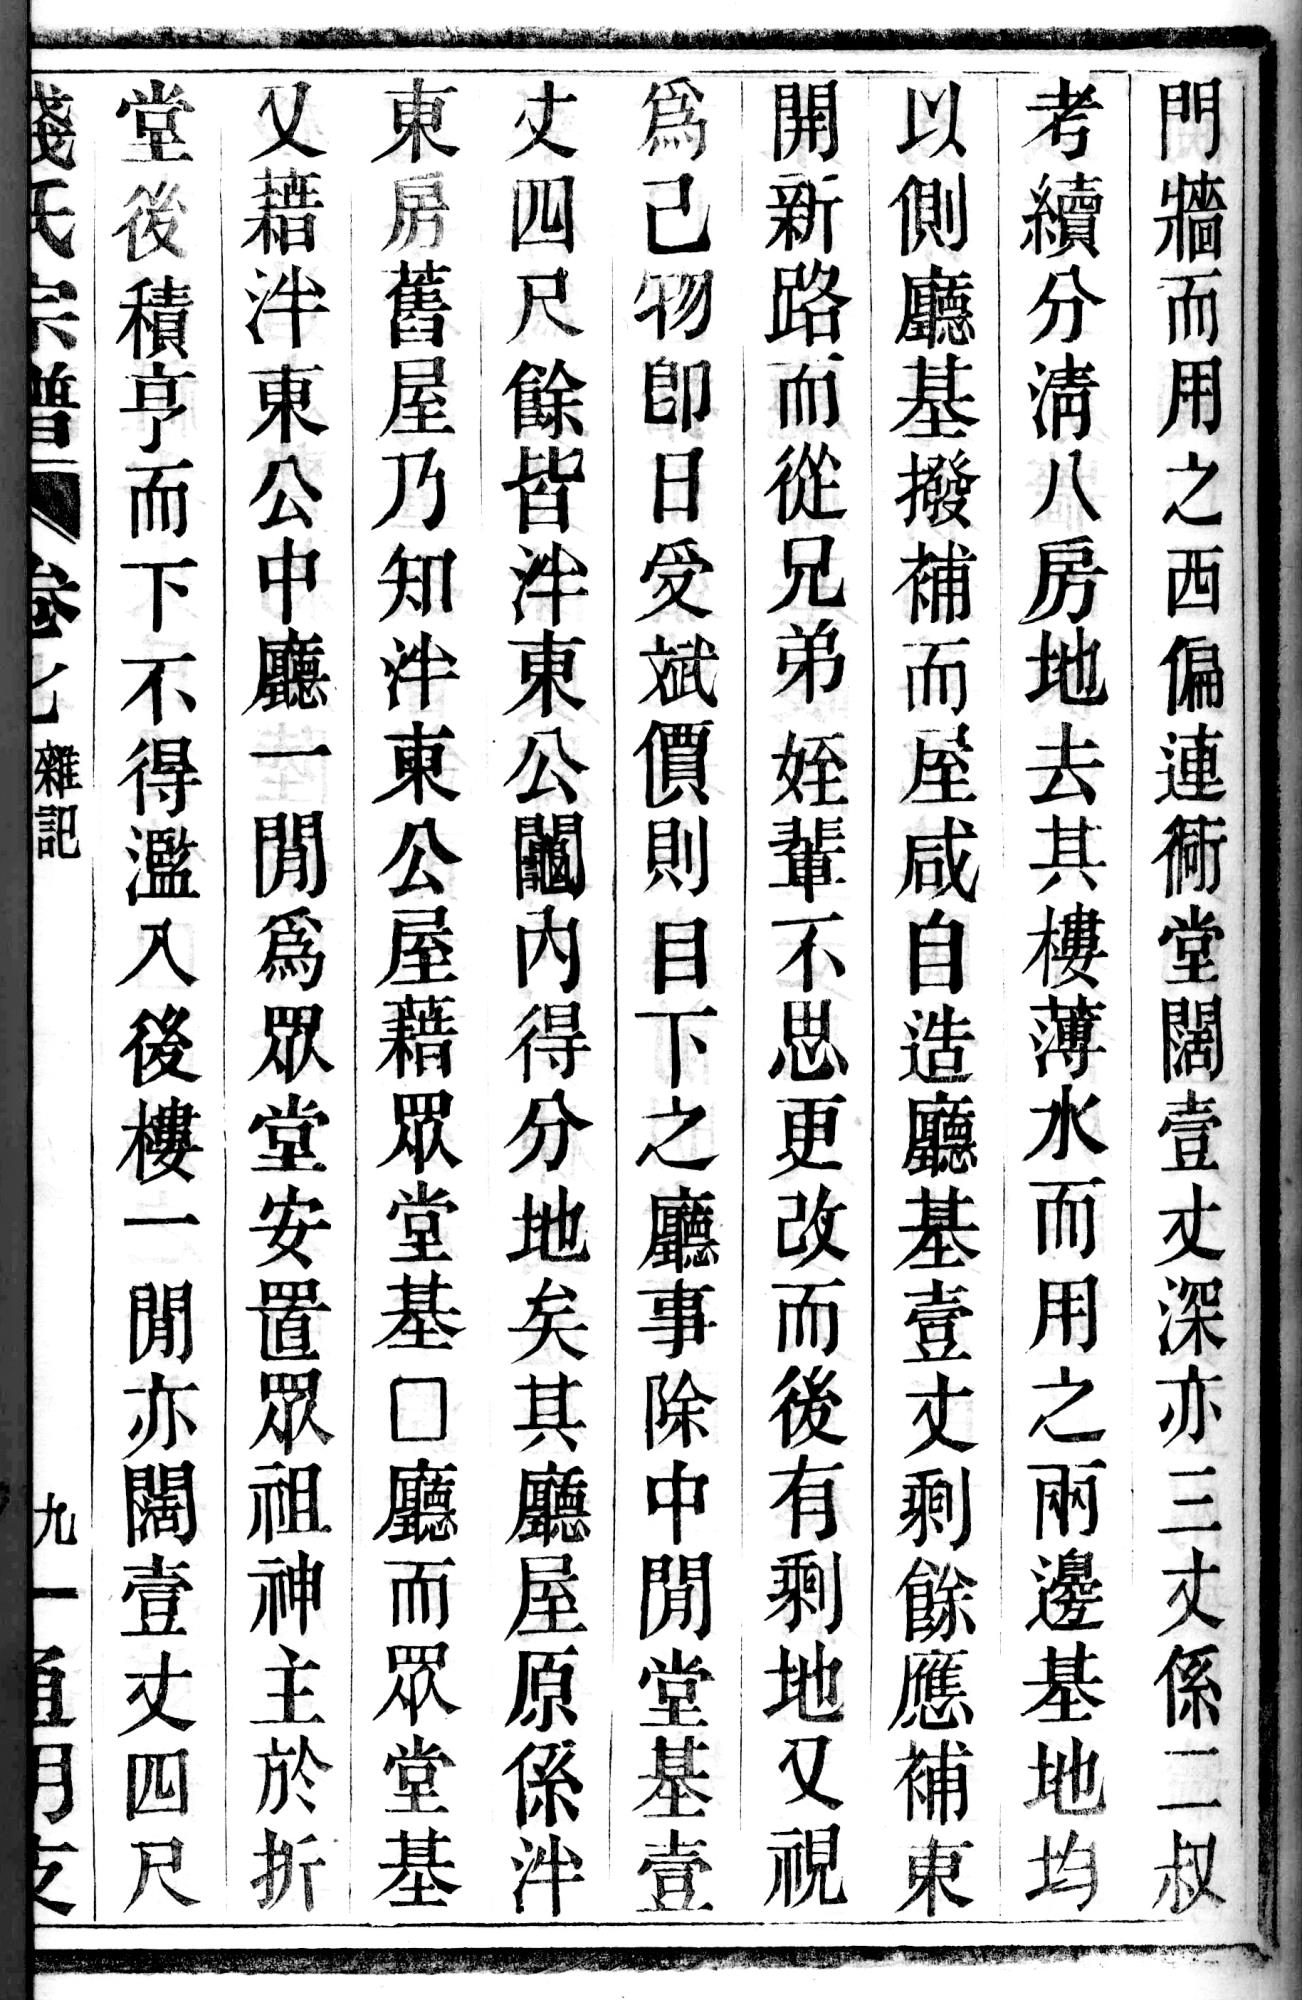 門牆而用之西偏連衖堂闊壹丈深亦三丈係二叔
考續分清八房地去其樓薄水而用之兩邊基地均
以側廳基撥補而屋咸自造廳基壹丈剩餘應補東
開新路而從兄弟姪輩不思更改而後有剩地又視
爲己物卽日受斌價則目下之廳事除中閒堂基壹
丈四尺餘皆泮東公鬮內得分地矣其廳屋原係泮
東房舊屋乃知泮東公屋藉眾堂基□廳而眾堂基
又藉泮東公中廳一閒爲眾堂安置眾祖神主於折
堂後積亭而下不得濫入後樓一閒亦闊壹丈四尺
錢氏宗譜 卷七 雜記 九 一 通明支